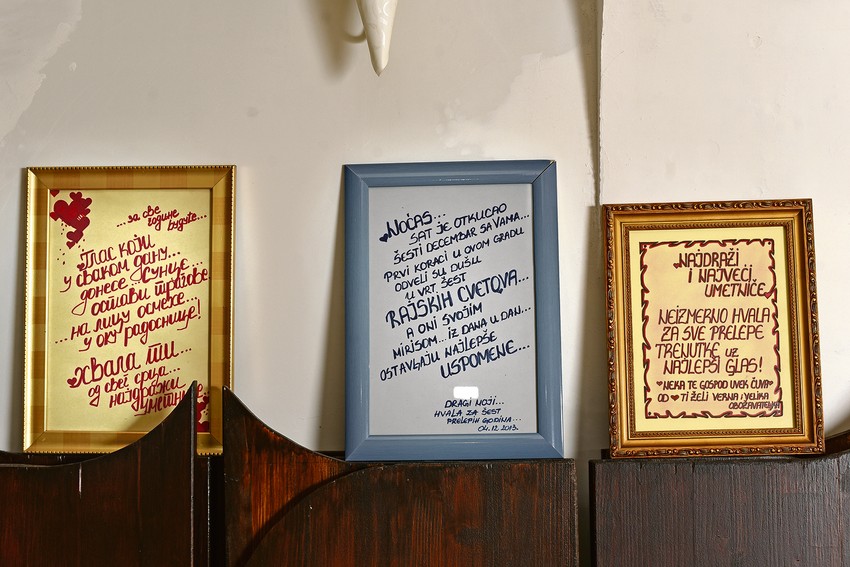 ...за све
године
будуће...
Глас који
у сваком дану...
донесе... Сунце...
остави трагове
... на лицу осмехе...
... у оку радоснице!
Хвала ти...
од свег срца...
најдражи
уметниче
Noćas...
sat je otkucao
šesti decembar sa Vama...
prvi koraci u ovom gradu
odveli su dušu
u vrt šest
rajskih cvetova...
a oni svojim
mirisom... iz dana u dan...
ostavljaju najlepše
uspomene...
Dragi Noji...
hvala za šest
prelepih godina...
04.12.2013.
Najdraži
i najveći
umetniče,
Neizmerno hvala
za sve prelepe
trenutke uz
najlepši glas!
Neka te Gospod uvek čuva
od ❤ ti želi verna i velika
obožavateljka